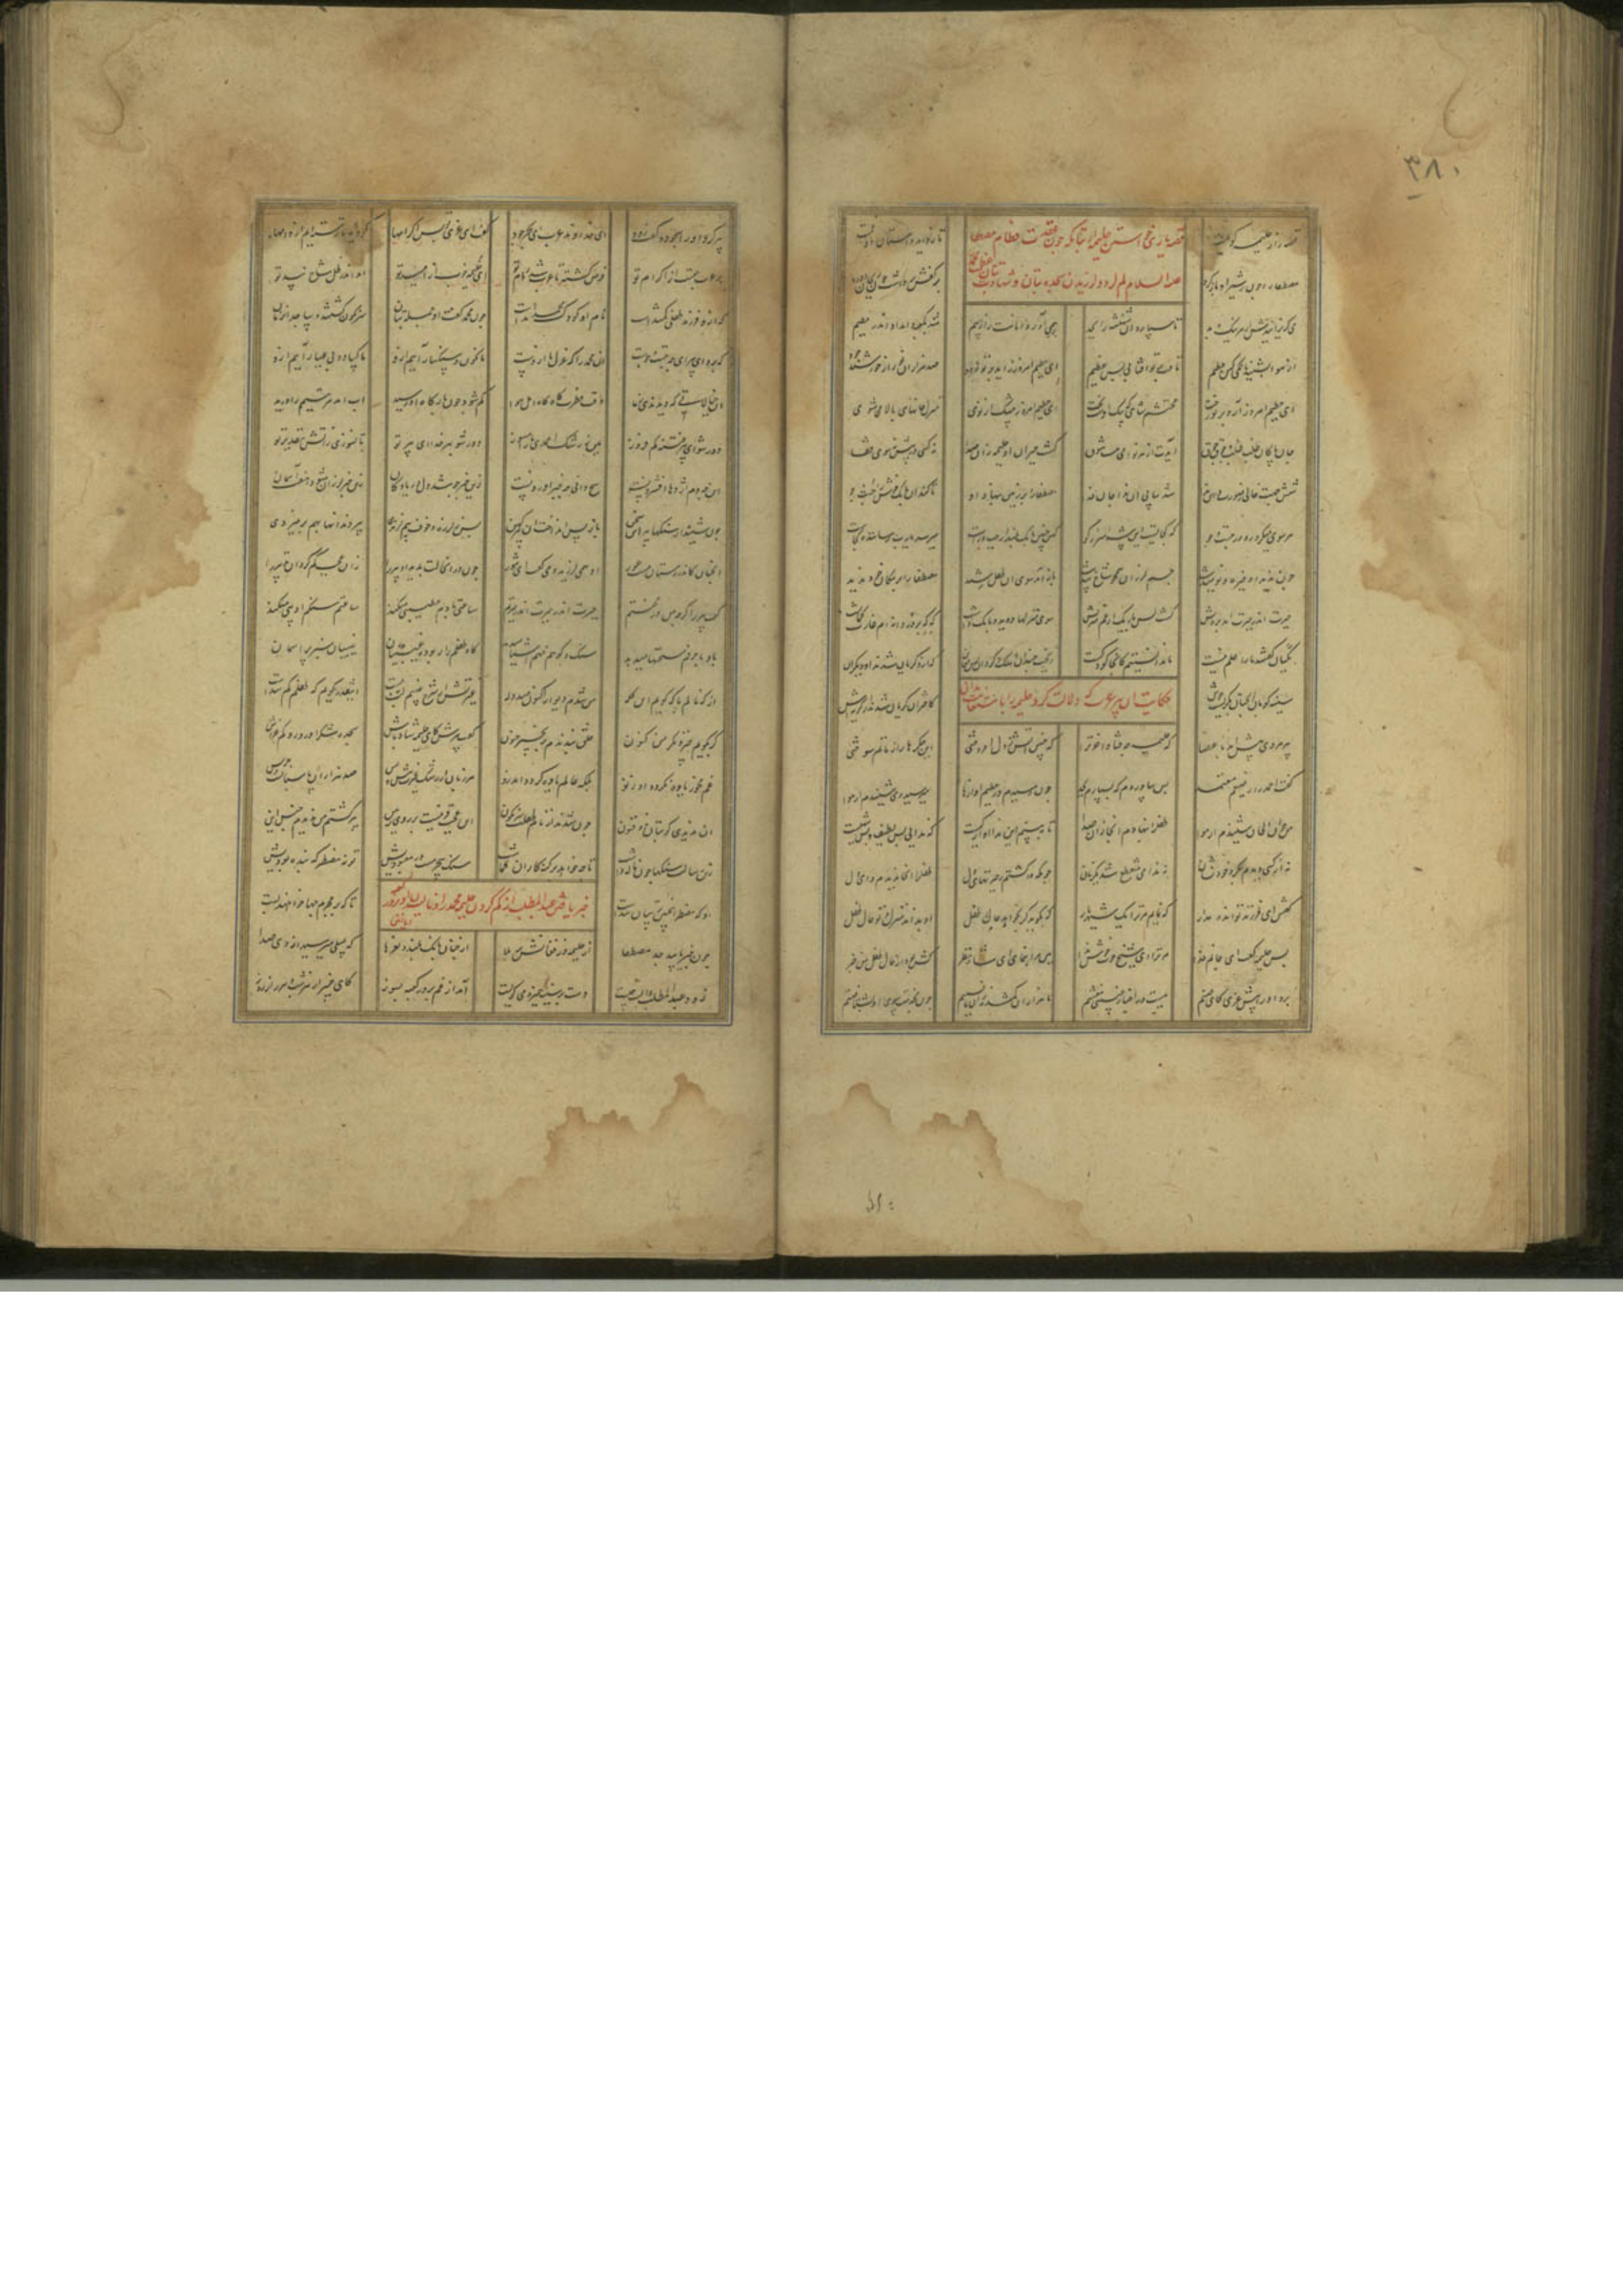 ۳۸۰
قصه راز حلیمه گویمت تا زداید داستان او غمت
قصه یاری خواستن حلیمه از بتان که چون عقیب فطام مصطفی
علیه السلام کم کرد و لرزیدن و سجده بتان و شهادت
مصطفی را چون ز شیر او باز کرد برکفش برداشت چون ریحان و ورد
می گریزانیدش از هر نیک و بد تا سپارد آن شهنشه را بجد چون همی آورد امانت را ز بیم شد بکعبه و آمد او اندر حطیم
از هوا بشنید بانگی کای حطیم تافت بر تو آفتابی بس عظیم ای حطیم امروز آید بر تو زود صد هزاران نور از خورشید جود
ای حطیم امروز آرد در تو رخت محتشم شاهی که پیک اوست بخت ای حطیم امروز بیشک از نوی منزل جانهای بالایی شوی
جان پاکان طلب طلب و جوق جوق آیدت از هر نواحی مست شوق گشت حیران آن حلیمه زان صدا نه کسی در پیش نه سوی قفا
شش جهت خالی ز صورت وین ندا شد پیاپی آن ندا را جان فدا مصطفی را بر زمین بنهاد او تا کند آن بانگ خوش را جست و جو
که کجاست این شه اسرار گو کین چنین بانگ بلند از چپ و راست میرسد یارب رساننده کجاست
چون ندید او خیره و نومید شد جسم لرزان همچو شاخ بید شد باز آمد سوی آن طفل رشید مصطفی را بر مکان خود ندید
حیرت اندر حیرت آمد بر دلش گشت بس تاریک از غم منزلش سوی منزلها دوید و بانگ داشت که که بر دردانه ام غارت گماشت
مکیان گفتند ما را علم نیست ما ندانستیم کانجا کودکیست ریخت چندان اشک و کرد او بس فغان که ازو گریان شدند آن دیگران
سینه کوبان آنچنان بگریست خوش کاختران گریان شدند از گریه اش
حکایت آن پیر عرب که دلالت کرد حلیمه را باستعانت بتان
پیرمردی پیشش آمد با عصا کای حلیمه چه فتاد آخر ترا که چنین آتش ز دل افروختی این جگرها را ز ماتم سوختی
گفت احمد را رضیعم معتمد پس بیاوردم که بسپارم بجد چون رسیدم در حطیم آوازها میرسید و می شنیدم از هوا
من چو آن الحان شنیدم از هوا طفل را بنهادم آنجا زان صدا تا ببینم این ندا آواز کیست که ندایی بس لطیف و بس شهیست
نه از کسی دیدم بگرد خود نشان نه ندا می منقطع شد یک زمان چونکه واگشتم ز حیرتهای دل طفل را آنجا ندیدم وای دل
گفتش ای فرزند تو انده مدار که نمایم مر ترا یک شهریار که بگوید گر بخواهد حال طفل او بداند منزل و ترحال طفل
پس حلیمه گفت ای جانم فدا مر ترا ای شیخ خوب خوش ندا هین مرا بنمای آن شاه نظر کش بود از حال طفل من خبر
برد او را پیش عزی کای صنم هست در اخبار غیبی مغتنم ما هزاران گم شده زو یافتیم چون بخدمت سوی او بشتافتیم
پیر کرد او را سجود و گفت زود ای خداوند عرب ای بحر جود گفت ای عزی تو بس اکرامها کرده تا رسته ایم از دامها
بر عرب حقست از اکرام تو فرض گشته تا عرب شد رام تو این حلیمه سعدی از امید تو آمد اندر ظل شاخ بید تو
که ازو فرزند طفلی گم شدست نام آن کودک محمد آمدست چون محمد گفت آن جمله بتان سرنگون گشتند و ساجد آن زمان
که برو ای پیر این چه جست و جوست آن محمد را که عزل ما ازوست ما نگون و سنگسار آییم ازو ما کساد و بی عیار آییم ازو
آن خیالاتی که دیدندی ز ما وقت فترت گاه گاه اهل هوا گم شود چون بارگاه او رسید آب آمد مر تیمم را درید
دور شو ای پیر فتنه کم فروز هین ز رشک احمدی ما را مسوز دور شو بهر خدا ای پیر تو تا نسوزی ز آتش تقدیر تو
این چه دم اژدها افشردنست هیچ دانی چه خبر آوردنست زین خبر جوشد دل دریا و کان زین خبر لرزان شود هفت آسمان
چون شنید از سنگها پیر این سخن پس ز لرزه و خوف و بیم آن ندا پیر دندانها بهم بر میزدی
آنچنان کاندر زمستان مرد عور او همی لرزید و می گفت ای ثبور چون در آن حالت بدید او پیر را زان عجب گم کرد زن تدبیر را
گفت پیرا گرچه من در محنتم حیرت اندر حیرت اندر حیرتم ساعتی بادم خطیبی میکند ساعتی سنگم ادیبی میکند
باد با حرفم سخنها میدهد سنگ و کوهم فهم اشیا میدهد گاه طفلم را ربوده غیبیان غیبیان سبز پر آسمان
از که نالم با که گویم این گله من شدم سودایی اکنون صد دله غیرتش از شرح غیبم لب ببست اینقدر گویم که طفلم گم شدست
گر بگویم چیز دیگر من کنون خلق بندندم بزنجیر جنون گفت پیرش کای حلیمه شاد باش سجده شکر آر و رو را کم خراش
غم مخور یاوه نگردد او ز تو بلکه عالم یاوه گردد اندرو هر زمان از رشک غیرت پیش و پس صد هزاران پاسبانست و حرس
آن ندیدی کان بتان ذو فنون چون شدند از نام طفلت سرنگون این عجب قرنیست بر روی زمین پیر گشتم من ندیدم جنس این
زین رسالت سنگها چون ناله داشت تا چه خواهد بر گنه کاران گماشت سنگ بی جرمست در معبودیش تو نه مضطر که بنده بودیش
او که مضطر اینچنین ترسان شدست تا که بر مجرم چها خواهند بست
خبر یافتن عبدالمطلب از گم کردن حلیمه محمد را
چون خبر یابید جد مصطفی از حلیمه وز فغانش بر ملا از چنان بانگ بلند و نعرها که بمیلی میرسید از وی صدا
زود عبدالمطلب دانست چیست دست بر سینه همی زد می گریست آمد از غم بر در کعبه بسوز کای خبیر از سر شب وز راز روز